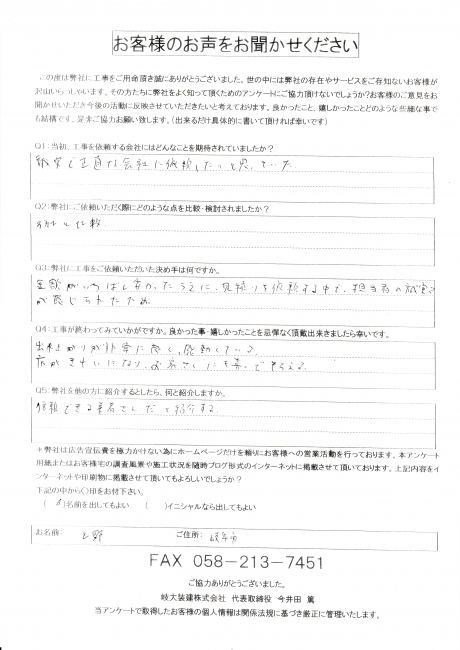 お客様のお声をお聞かせください
この度は弊社に工事をご用命頂き誠にありがとうございました。世の中には弊社の存在やサービスをご存知ないお客様が
沢山いらっしゃいます。その方たちに弊社をよく知って頂くためのアンケートにご協力頂けないでしょうか?お客様のご意見をお
聞かせいただき今後の活動に反映させていただきたいと考えております。良かったこと、嬉しかったことどのような些細な事で
も結構です、是非ご協力お願い致します。(出来るだけ具体的に書いて頂ければ幸いです)
Q1:当初、工事を依頼する会社にはどんなことを期待されていましたか?
誠実で正直な会社に依頼したいと思っていた
Q2:弊社にご依頼いただく際にどのような点を比較・検討されましたか?
比較
Q3:弊社に工事をご依頼いただいた決め手は何ですか。
金額がいちばん安かったうえに、見積りを依頼する中で、担当者の誠実さ
が感じられたため
Q4:工事が終わってみていかがですか。良かった事・嬉しかったことを忌憚なく頂戴出来きましたら幸いです。
出来上がりが非常に良く、感動している。
店がきれいになり、お客さんにも喜んで
Q5:弊社を他の方に紹介するとしたら、何と紹介しますか。
信頼できる業者さんだと紹介する
*弊社は広告宣伝費を極力かけない為にホームページだけを頼りにお客様への営業活動を行っております。本アンケート
用紙またはお客様宅の調査風景や施工状況を随時ブログ形式のインターネットに掲載させて頂いております。上記内容をイ
ンターネットや印刷物に掲載させて頂いてもよろしいでしょうか?
下記の中から○印をお付下さい。
( )名前を出してもよい ( )イニシャルなら出してもよい
お名前: 上野 ご住所: 岐阜市
FAX 058-213-7451
ご協力ありがとうございました。
岐大装建株式会社 代表取締役 今井田 篤
当アンケートで取得したお客様の個人情報は関係法規に基づき厳正に管理いたします。